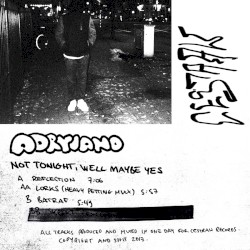 CESTRAAL
ADRYIANO
NOT TONIGHT, WELL MAYBE YES
A REFLECTION 7:06
AA LORKS (HEAVY PETTING MIXX) 5:57
B BATRAF 5:49
ALL TRACKS PRODUCED AND MIXED IN ONE DAY FOR CESTRAAL RECORDS
COPYRIGHT AND SHIT 2017.